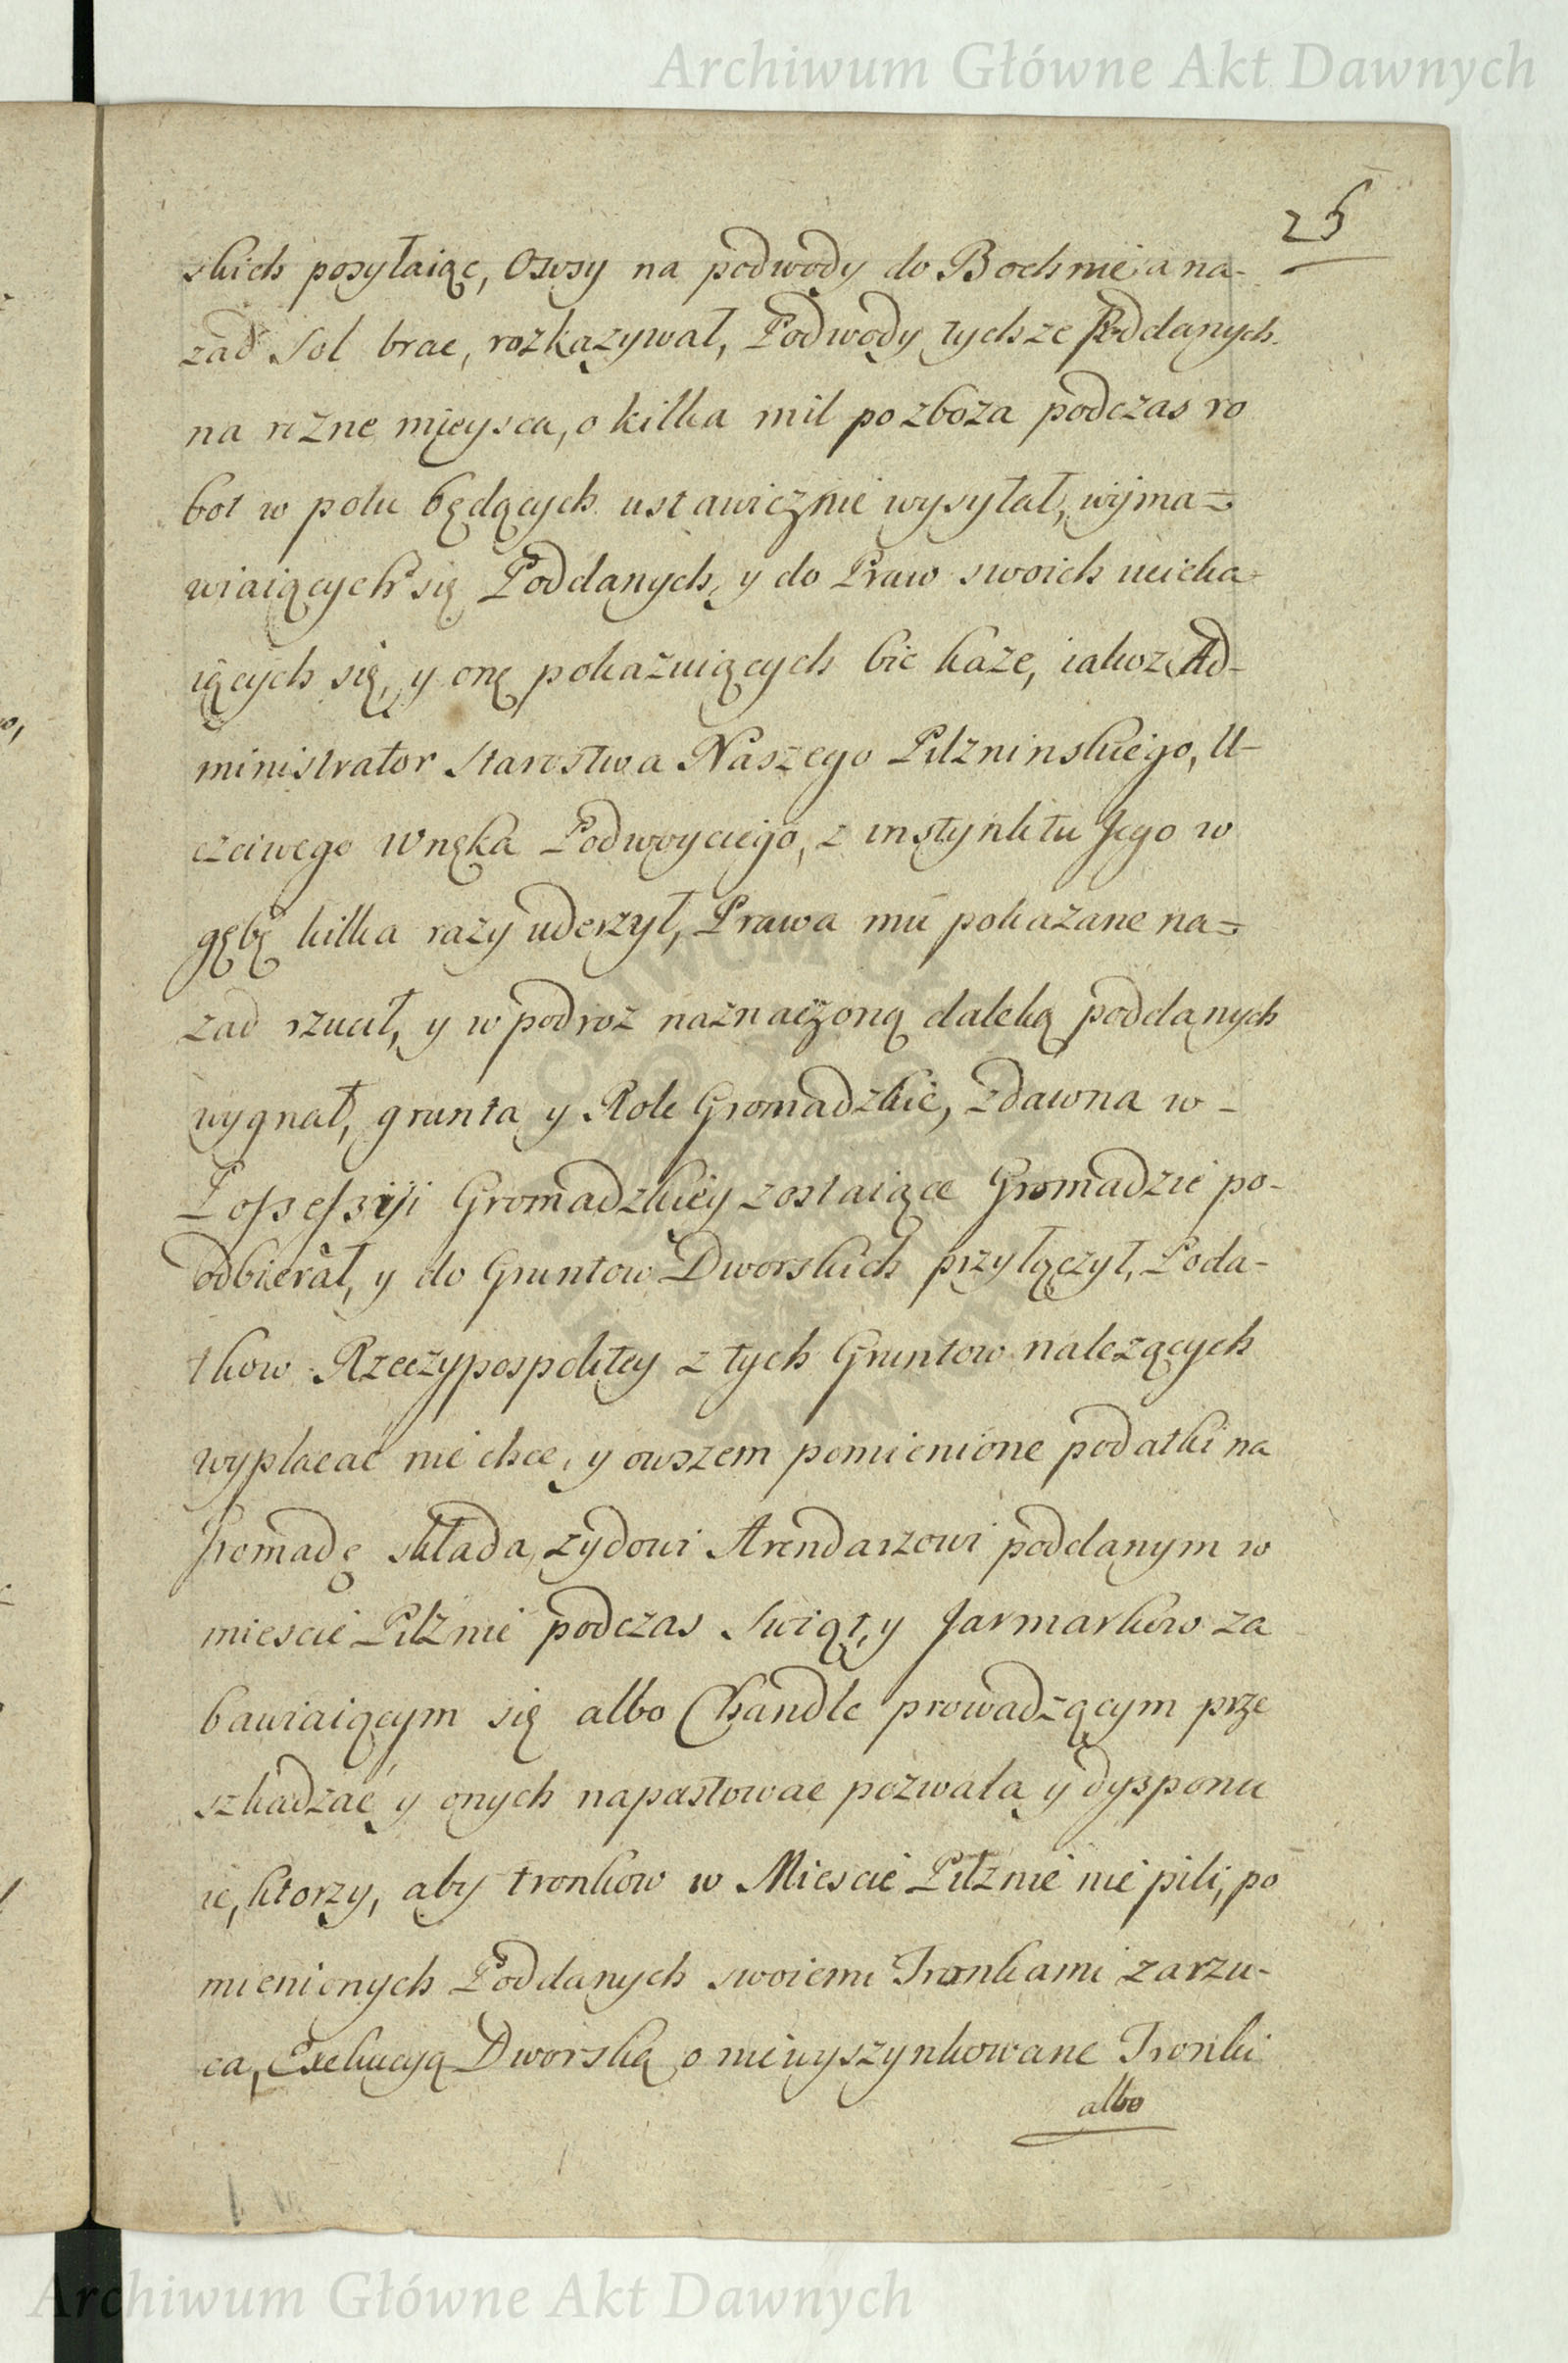 Archiwum Główne Akt Dawnych
25
skich posyłaiąc, Owsy na podwody do Bochnie, a na-
zad Sol brac, rozkazywał, Podwody tychze Poddanych
na rozne mieysca, o kilka mil po zboza podczas ro
bot w polu będących ustawicznie wysyłał, wyma=
wiaiących się Poddanych, y do Praw swoich ucieka
iących się, y onę pokazuiących bic kaze, iakoz Ad-
ministrator Starostwa Naszego Pilzninskiego, U-
czciwego Wnęka Podwoyciego, z instynktu Jego w
gębę kilka razy uderzył, Prawa mu pokazane na=
zad rzucił, y w podroz naznaczoną daleką poddanych
wygnał, grunta y Role Gromadzkie, zdawna w-
Possessyi Gromadzkiey zostaiące Gromadzie po-
odbierał, y do Gruntow Dworskich przyłączył, Poda-
tkow Rzeczypospolitey z tych Gruntow nalezących
wypłacac nie chce, y owszem pomienione podatki na
Gromadę składa, zydowi Arendarzowi poddanym w
miescie Pilznie podczas Swiąt, y Jarmarkow za
bawiaiącym się albo Chandle prowadzącym prze
szkadzac y onych napastowac pozwala y dysponu
ie, ktorzy, aby tronkow w Miescie Pilznie nie pili, po
mienionych Poddanych swoiemi Tronkami zarzu-
ca, Exekucyą Dworską o niewyszynkowane Tronki
albo
Archiwum Główne Akt Dawnych